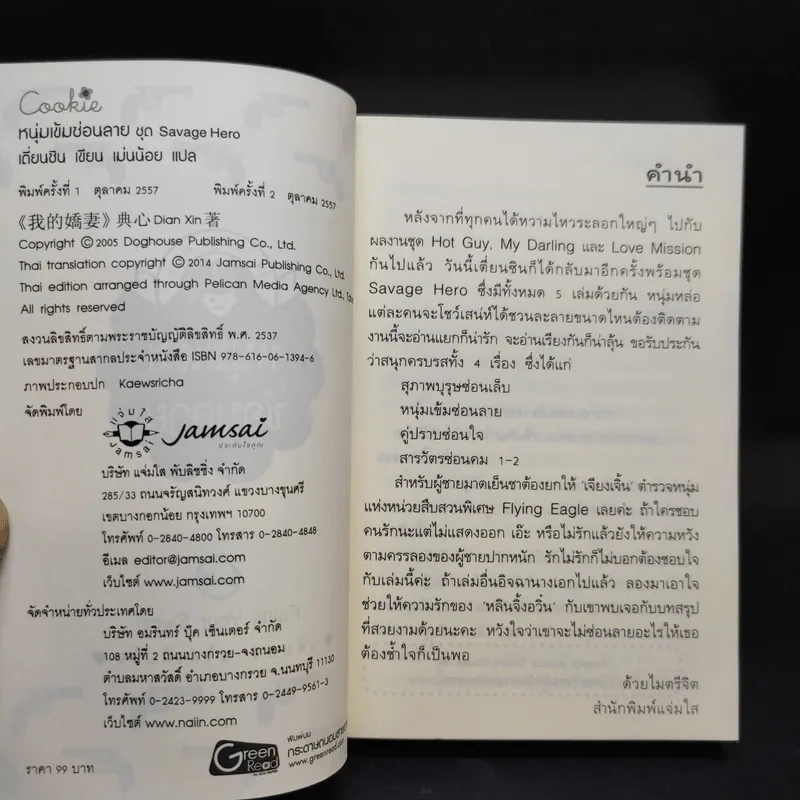 Cookie
หนุ่มเข้มซ่อนลาย ชุด Savage Hero
เตี่ยนชิน เขียน เม่นน้อย แปล
พิมพ์ครั้งที่ 1 ตุลาคม 2557 พิมพ์ครั้งที่ 2 ตุลาคม 2557
《我的嬌妻》典心 Dian Xin 著
Copyright © 2005 Doghouse Publishing Co., Ltd.
Thai translation copyright © 2014 Jamsai Publishing Co., Ltd.
Thai edition arranged through Pelican Media Agency Ltd.,
All rights reserved
สงวนลิขสิทธิ์ตามพระราชบัญญัติลิขสิทธิ์ พ.ศ. 2537
เลขมาตรฐานสากลประจำหนังสือ ISBN 978-616-06-1394-6
ภาพประกอบปก Kaewsricha
จัดพิมพ์โดย
แจ่มใส
Jamsai
Jamsai
ประทับใจคุณ
บริษัท แจ่มใส พับลิชชิ่ง จำกัด
285/33 ถนนจรัญสนิทวงศ์ แขวงบางขุนศรี
เขตบางกอกน้อย กรุงเทพฯ 10700
โทรศัพท์ 0-2840-4800 โทรสาร 0-2840-4848
อีเมล editor@jamsai.com
เว็บไซต์ www.jamsai.com
จัดจำหน่ายทั่วประเทศโดย
บริษัท อมรินทร์ บุ๊ค เซ็นเตอร์ จำกัด
108 หมู่ที่ 2 ถนนบางกรวย-จงถนอม
ตำบลมหาสวัสดิ์ อำเภอบางกรวย จ.นนทบุรี 11130
โทรศัพท์ 0-2423-9999 โทรสาร 0-2449-9561-3
เว็บไซต์ www.naiin.com
Green Read
พิมพ์บน
กระดาษถนอมสายตา
www.greenread.com
ราคา 99 บาท
คำนำ
หลังจากที่ทุกคนได้หวามไหวระลอกใหญ่ๆ ไปกับ
ผลงานชุด Hot Guy, My Darling และ Love Mission
กันไปแล้ว วันนี้เตี่ยนชินก็ได้กลับมาอีกครั้งพร้อมชุด
Savage Hero ซึ่งมีทั้งหมด 5 เล่มด้วยกัน หนุ่มหล่อ
แต่ละคนจะโชว์เสน่ห์ได้ชวนละลายขนาดไหนต้องติดตาม
งานนี้จะอ่านแยกก็น่ารัก จะอ่านเรียงกันก็น่าลุ้น ขอรับประกัน
ว่าสนุกครบรสทั้ง 4 เรื่อง ซึ่งได้แก่
สุภาพบุรุษซ่อนเล็บ
หนุ่มเข้มซ่อนลาย
คู่ปราบซ่อนใจ
สารวัตรซ่อนคม 1-2
สำหรับผู้ชายมาดเย็นชาต้องยกให้ 'เจียงเจิ้น' ตำรวจหนุ่ม
แห่งหน่วยสืบสวนพิเศษ Flying Eagle เลยค่ะ ถ้าใครชอบ
คนรักนะแต่ไม่แสดงออก เอ๊ะ หรือไม่รักแล้วยังให้ความหวัง
ตามครรลองของผู้ชายปากหนัก รักไม่รักก็ไม่บอกต้องชอบใจ
กับเล่มนี้ค่ะ ถ้าเล่มอื่นอิจฉานางเอกไปแล้ว ลองมาเอาใจ
ช่วยให้ความรักของ 'หลินจิ้งอวิ๋น' กับเขาพบเจอกับบทสรุป
ที่สวยงามด้วยนะคะ หวังใจว่าเขาจะไม่ซ่อนลายอะไรให้เธอ
ต้องช้ำใจก็เป็นพอ
ด้วยไมตรีจิต
สำนักพิมพ์แจ่มใส